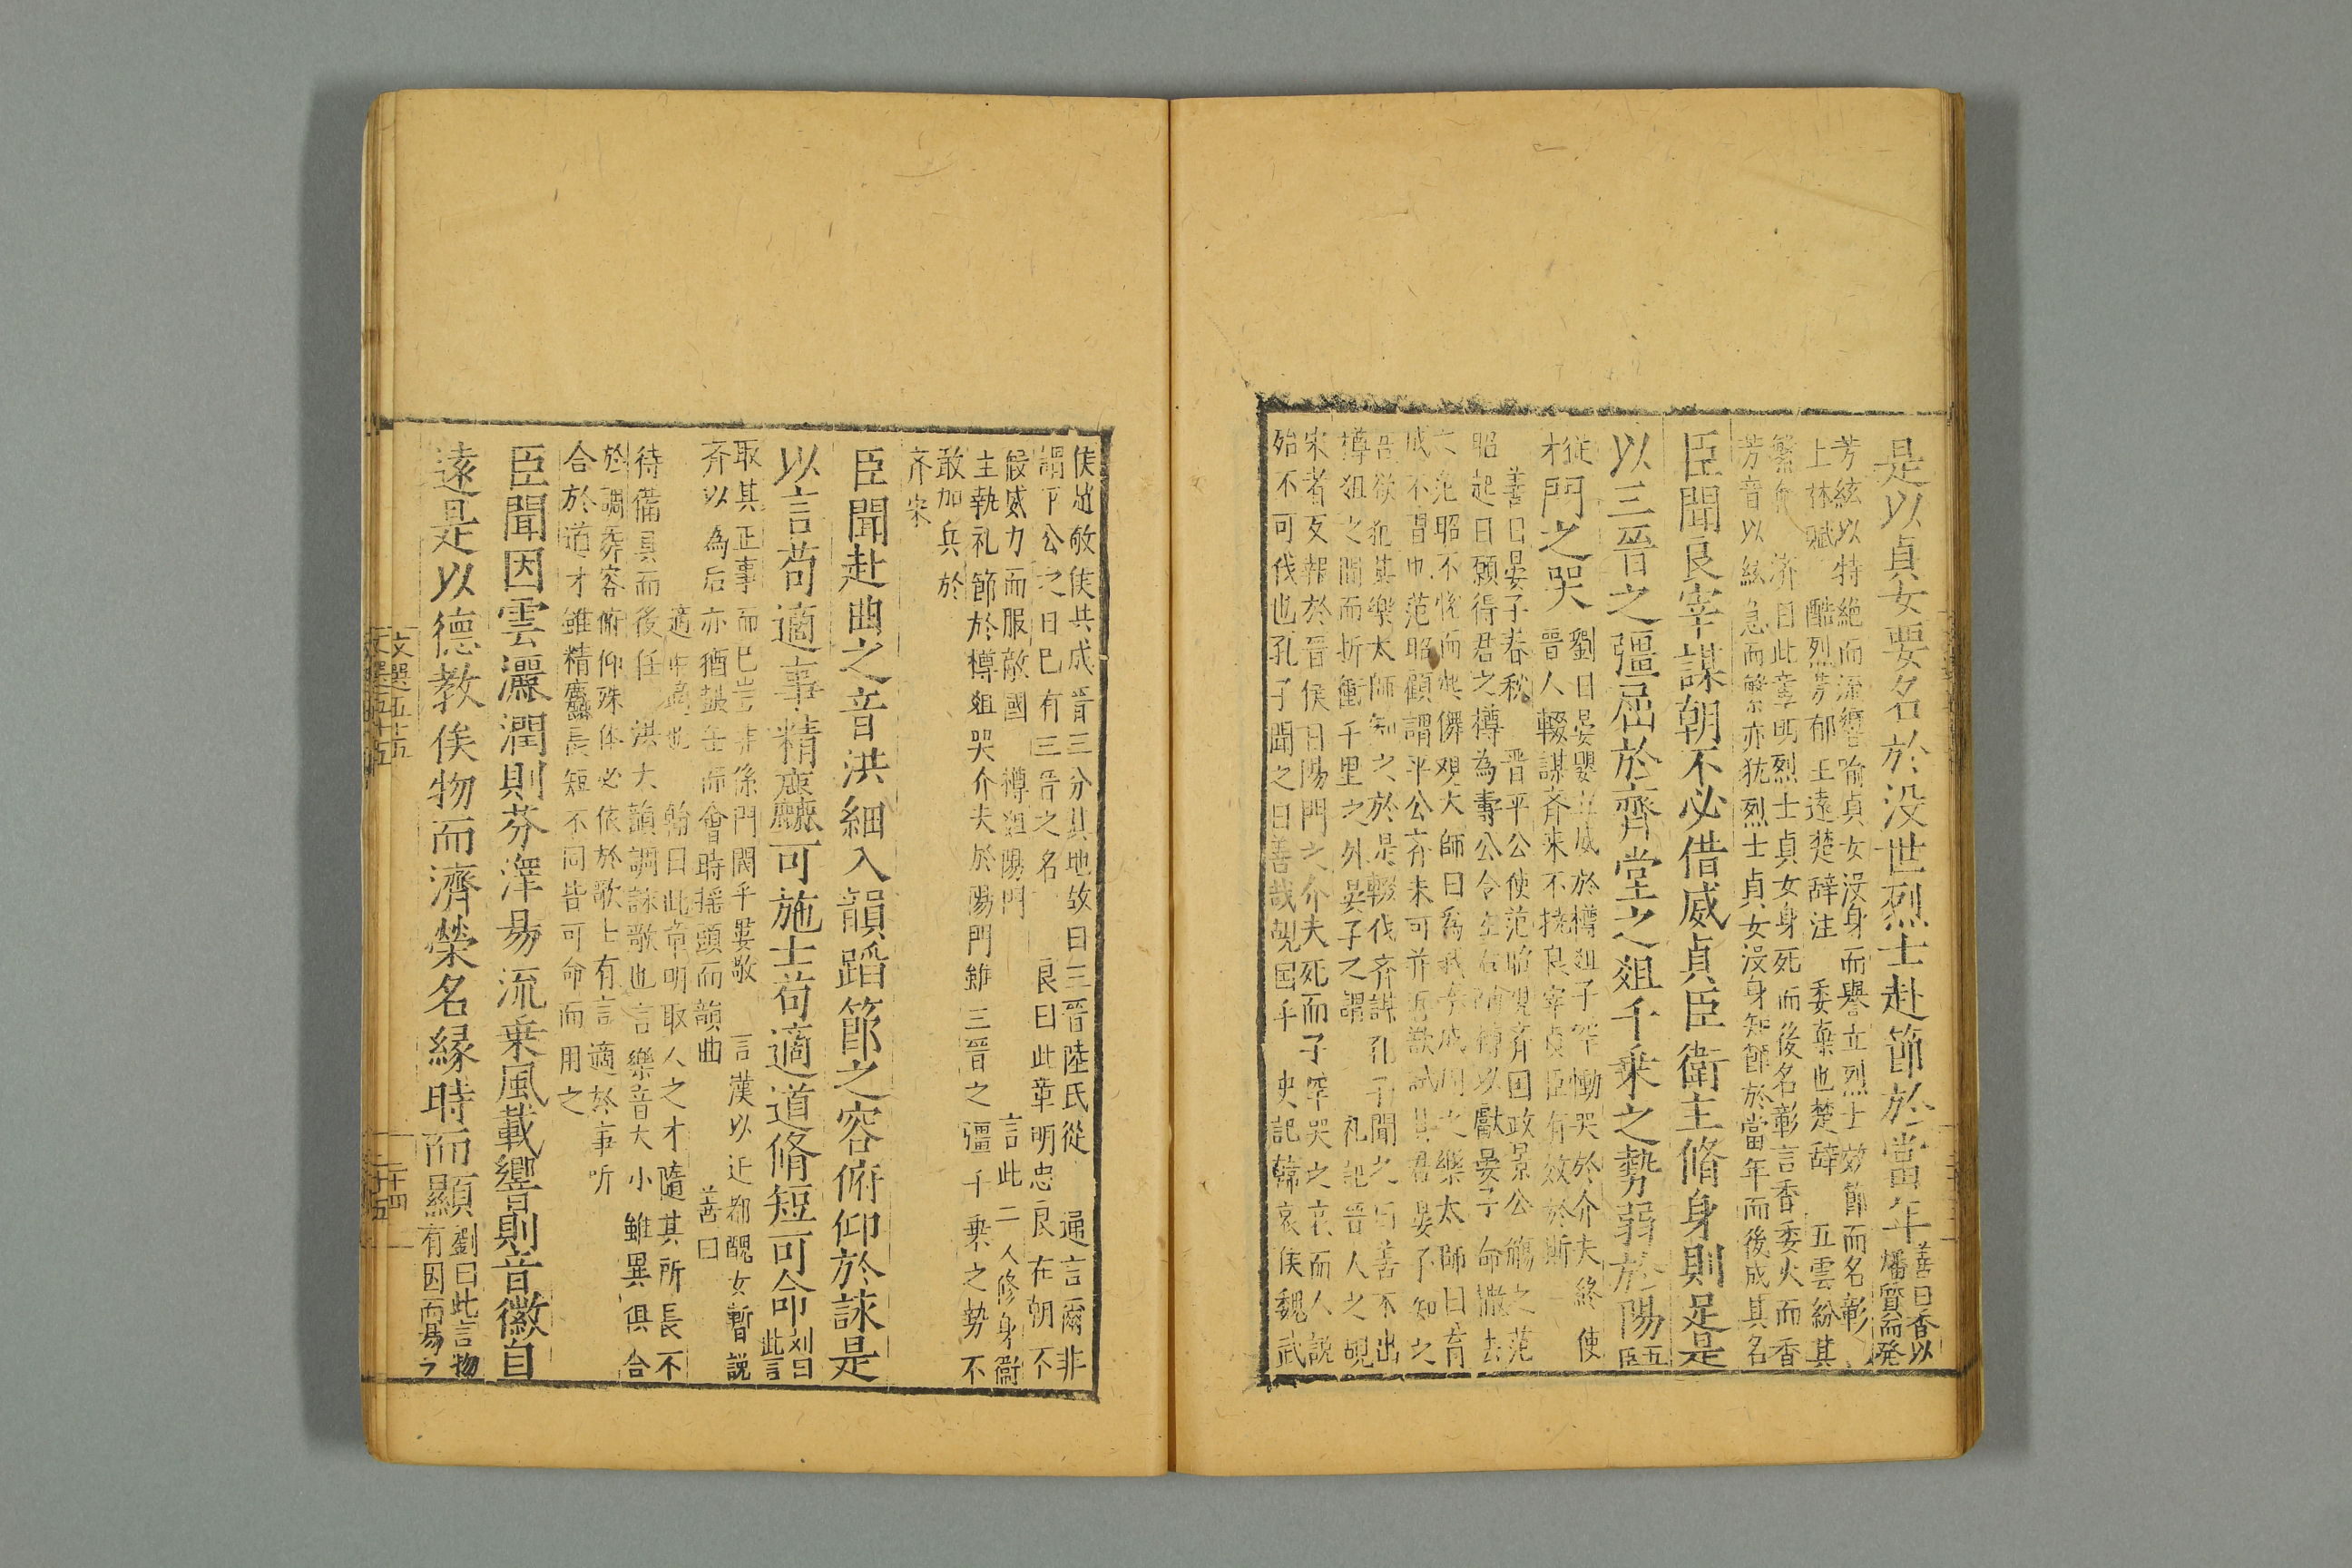 是以貞女要名於没世烈士赴節於當年善曰香以
燔質而発
芳絃以特絶而流響喻貞女没身而譽立烈士效節而名彰
上林賦 酷烈芳郁 王逸楚辞注 委棄也楚辞 五雲紛其
繁 済曰此章明烈士貞女身死而後名彰言香委火而香
芳音以絃急而繁亦犹烈士貞女没身知節於當年而後成其名
臣聞良宰謀朝不必借威貞臣衛主脩身則足是
以三晉之彊屈於齊堂之爼千乗之勢弱於陽五
臣
從
才門之哭劉曰晏嬰 威於樽爼子罕慟哭於介夫終使
晋人輟謀斉来不撓良宰貞臣有效於斯
善曰晏子春秋 晋平公使范昭覌斉国政景公觴之范
昭起曰願得君之樽為壽公令左右 樽以獻晏子命撤去
之范昭不悅而起儛覌大師曰為我奏成周之樂太師曰盲
臣不習也范昭顧謂平公斉未可并 欲試其君晏子知之
吾欲犯其樂太師知之於是輟伐斉謀孔子聞之曰善不出
樽爼之間而折衝千里之外晏子之謂 礼記晉人之覘
宋者反報於晋侯曰陽門之介夫死而子罕哭之哀而人說
殆不可伐也孔子聞之曰善哉覘国乎 史記韓哀侯魏武
侯趙敬侯共成晋三分其地故曰三晋陸氏從 通言爾非
謂平公之日已有三晋之名 良曰此章明忠良在朝不
假威力而服敵國 樽爼陽門 言此二人修身衛
主執礼節於樽爼哭介夫於陽門雖三晋之彊千乗之勢不
敢加兵於
斉宋
臣聞赴曲之音洪細入韻蹈節之容俯仰於詠是
以言苟適事精麤可施士苟適道脩短可命刘曰
此言
取其正事而已豈非係門閥乎婁敬 言漢以迁都醜女暫説
斉以為后亦猶鼓缶而會時揺頭而韻曲 善曰
適 也 翰曰此章明取人之才隨其所長不
待備具而後任 洪大韻調詠歌也言樂音大小雖異俱合
於調舞容俯仰殊体必依於歌士有言適於事听
合於道才雖精麤長短不同皆可命而用之
臣聞因雲灑潤則芬澤昜流乗風載響則音徽自
遠是以德教俟物而濟榮名縁時而顯劉曰此言物
有因而昜ラ
文選五十五
二十四